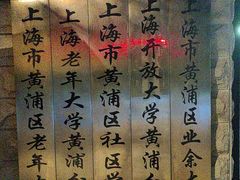 上海市黄浦区业余大
上海开放大学黄浦
上海市黄浦区社区学
上海老年大学黄浦
上海市黄浦区老年